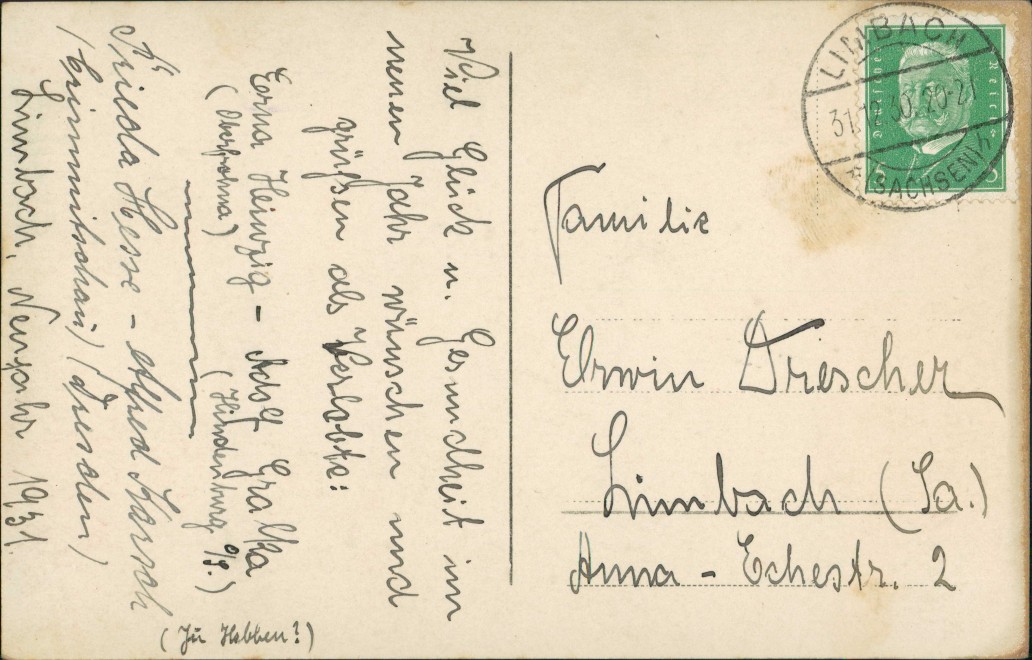 Viel Glück u. Gesundheit im
neuen Jahr wünschen und
grüßen als Verlobte:
Erna Heinzig - Adolf Gralka
(Oberfrohna) (Hindenburg O/S.)
Frieda Hesse - Alfred Karsch
(Crimmitschau) (Dresden)
Limbach, Neujahr 1931.
LIMBACH
31.12.30. 20-21
* (SACHSEN) h
Deutsches Reich
5 5
Familie
Erwin Drescher
Limbach (Sa.)
Anna-Echestr. 2